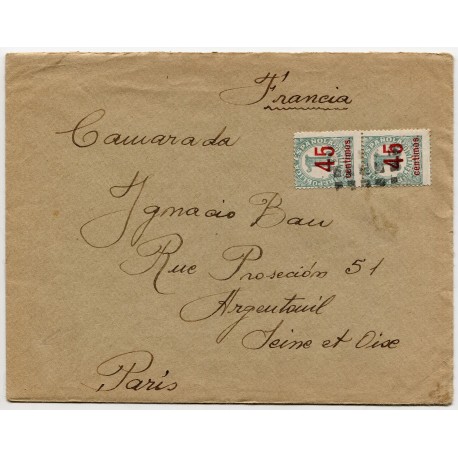 Francia
Camarada
45 céntimos
45 céntimos
REPÚBLICA ESPAÑOLA
Ignacio Bau
Rue Proseción 51
Argenteuil
Seine et Oise
París